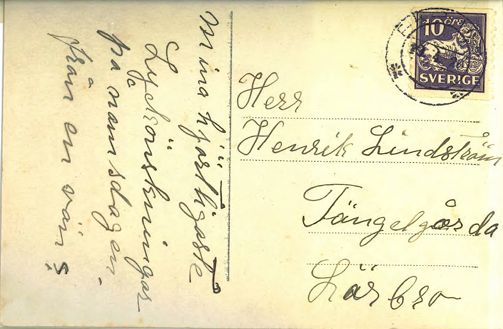 Mina hjärtligaste
Lyckönskningar
på namsdagen
från en vän
10 ÖRE
SVERIGE
Herr
Henrik Lindström
Tängelgårda
Lärbro